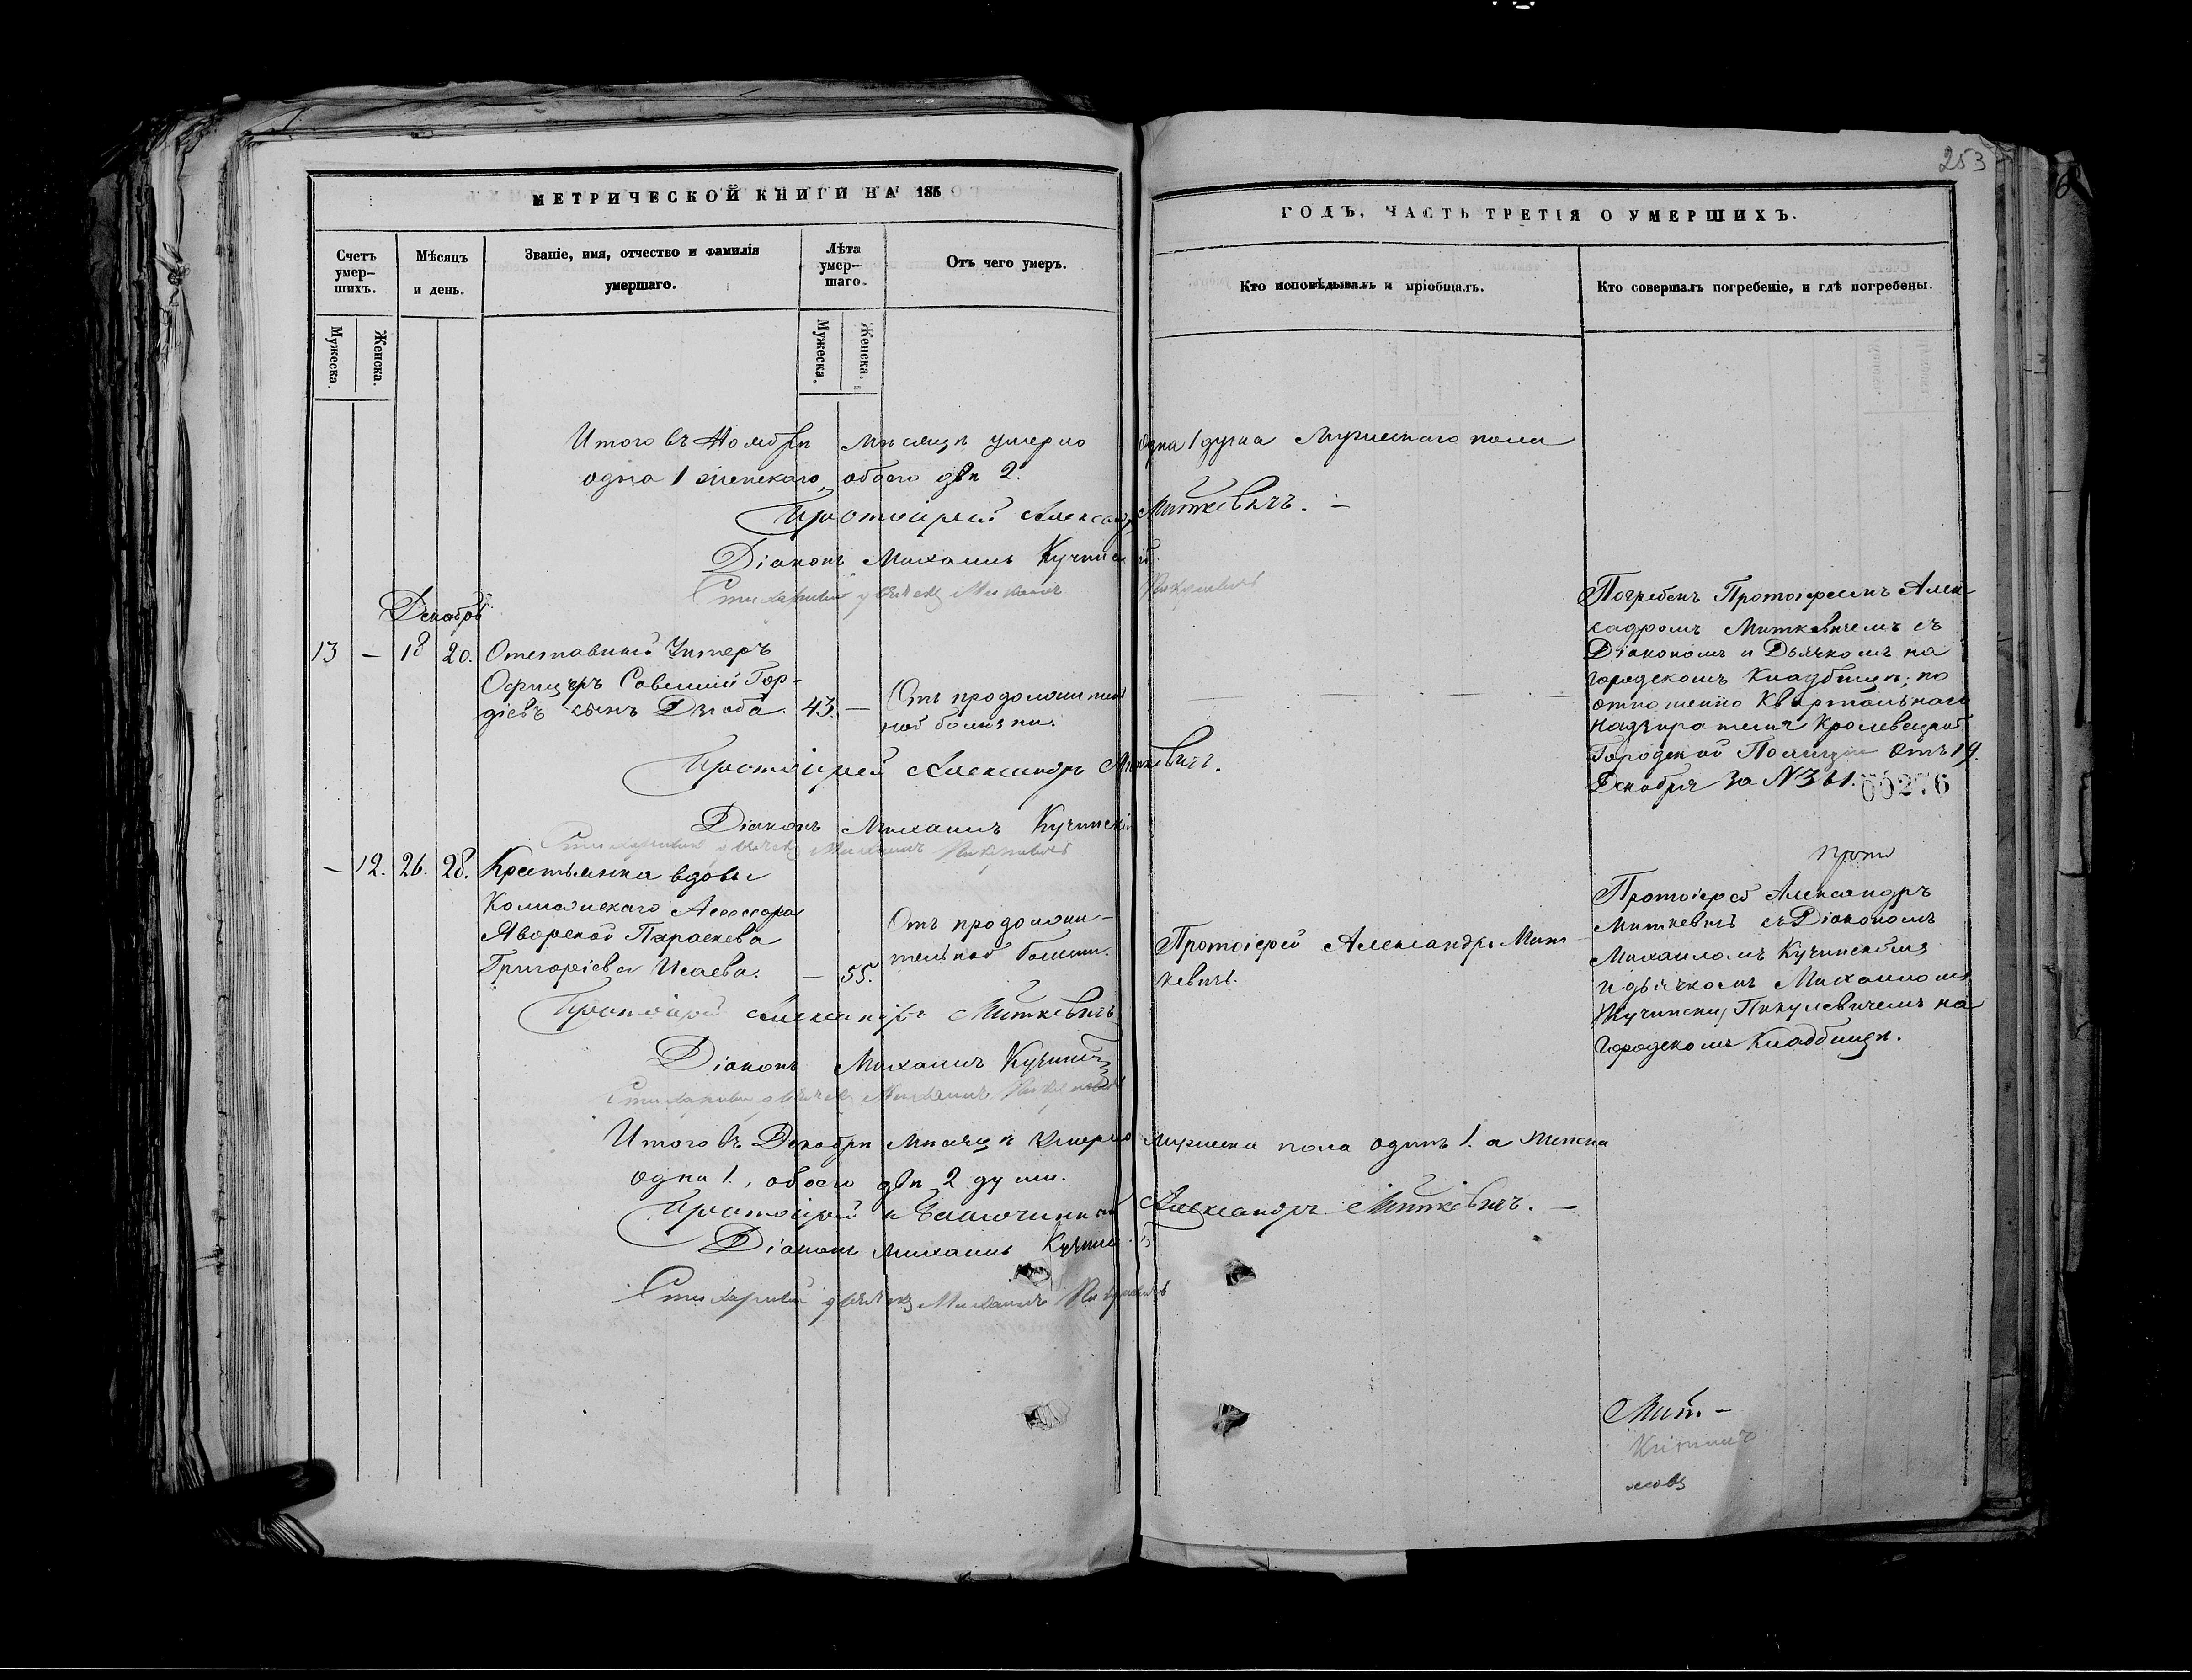 253
МЕТРИЧЕСКОЙ КНИГИ НА 185
ГОДЪ, ЧАСТЬ ТРЕТІЯ О УМЕРШИХЪ.
Счетъ умер-шихъ.
Мѣсяцъ и день.
Званіе, имя, отчество и фамилія
умершаго.
Лѣта умер-шаго.
Отъ чего умеръ.
Кто исповѣдывалъ и пріобщалъ.
Кто совершалъ погребеніе, и гдѣ погребены.
Мужеска.
Женска.
Мужеска.
Женска.
Итого въ Ноябрѣ мѣсяцѣ умерло одна 1 душа мужескаго пола
одна 1 женскаго, обоего двѣ 2.
Протоіерей Александръ Миткевичъ. –
Діаконъ Михаилъ Кучинскій.
Стихарный дьячекъ Михаилъ Пикулевичъ
Декабрь
13 – 18 20. Отставный Унтеръ
Офицеръ Савелій Гор-
діевъ сынъ Дзюба. 43. –
Отъ продолжитель
ной болѣзни.
Погребенъ Протоіереемъ Алек
сандромъ Миткевичемъ съ
Діакономъ и Дьячкомъ на
городскомъ Кладбищѣ; по
отношенію Квартальнаго
надзирателя Кролевецкой
Городской Полиціи отъ 19.
Декабря за № 361.
00276
Протоіерей Александръ Миткевичъ.
Діаконъ Михаилъ Кучинскій
Стихарный дьячекъ Михаилъ Пикулевичъ
– 12. 26. 28. Крестьянка вдовы
Колежскаго Асессора
Яворской Параскева
Григоріева Исаева. – 55.
Отъ продолжи-
тельной болѣзни.
Протоіерей Александръ Мит
кевичъ.
Прото
Протоіерей Александръ
Миткевичъ съ Діакономъ
Михаиломъ Кучинскимъ
и дьячкомъ Михаиломъ
Кучински Пикулевичемъ на
Городскомъ Кладбищѣ.
Протоіерей Александръ Миткевичъ
Діаконъ Михаилъ Кучинскій
Стихарный дьячекъ Михаилъ Пикулевичъ
Итого въ Декабрѣ мѣсяцѣ умерло мужеска пола одинъ 1. а женска
одна 1., обоего двѣ 2 души.
Протоіерей и Благочинный Александръ Миткевичъ. –
Діаконъ Михаилъ Кучинскій
Стихарный дьячекъ Михаилъ Пикулевичъ
Мит. –